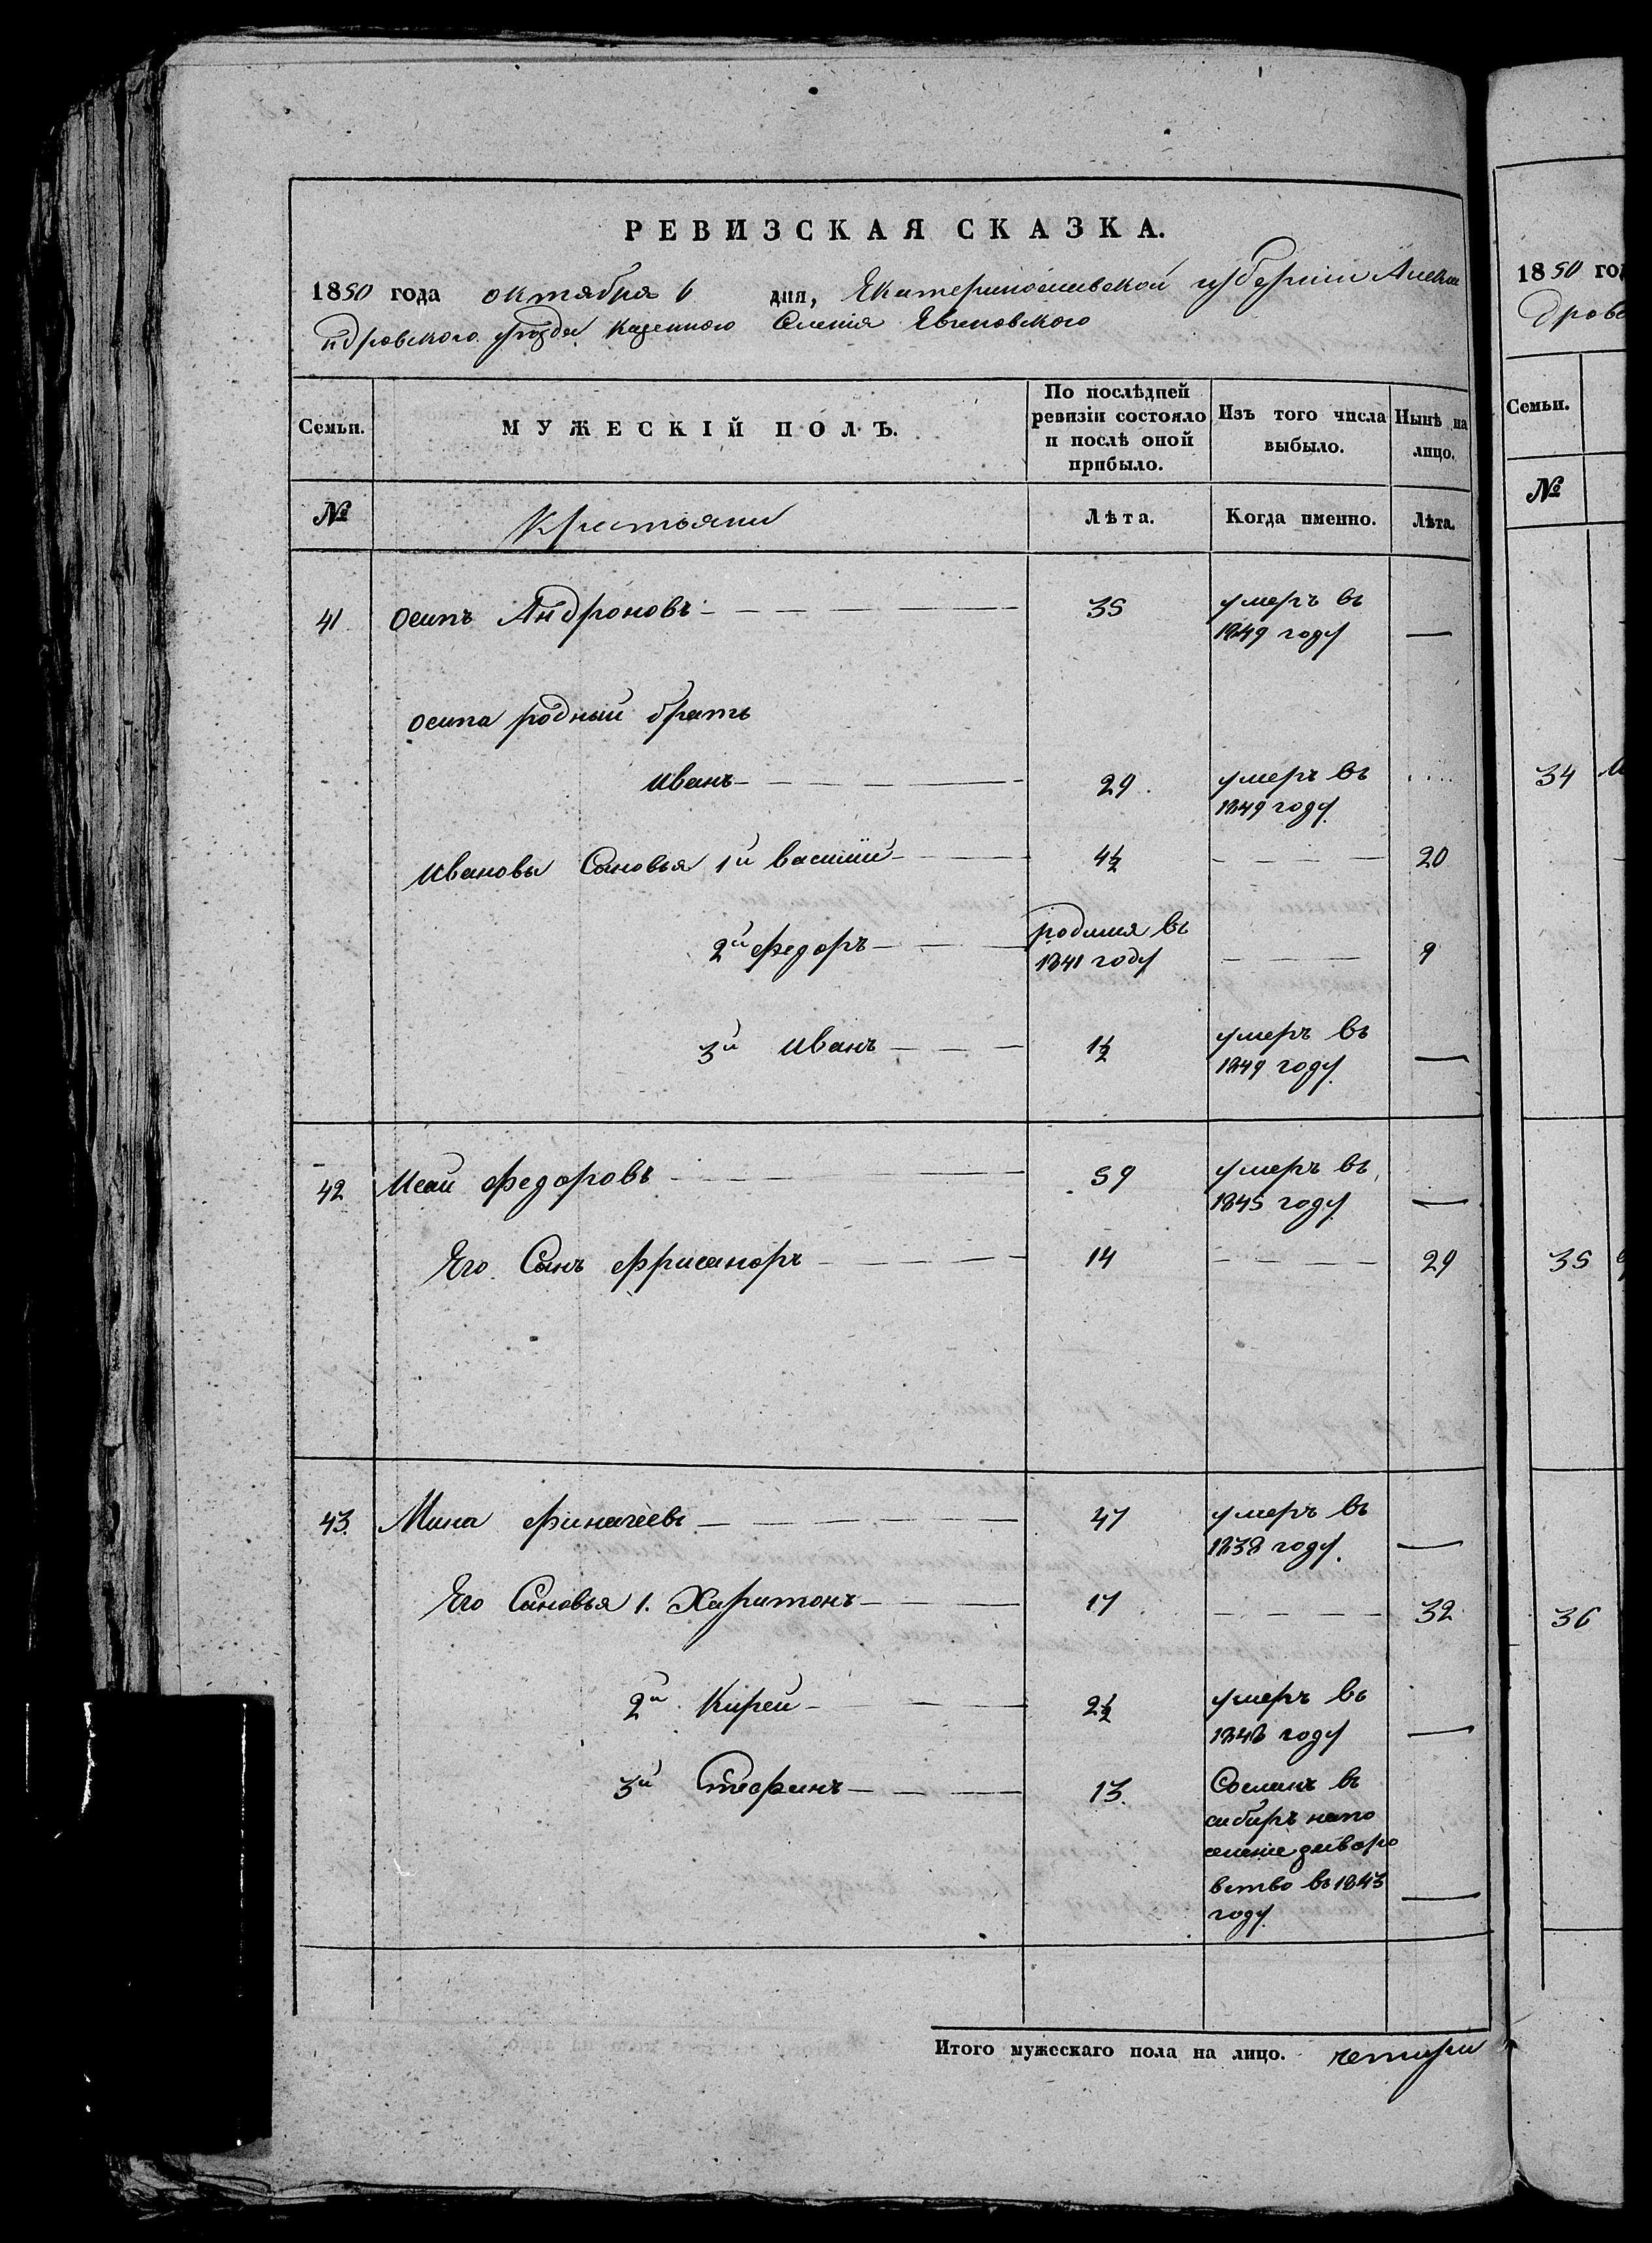 РЕВИЗСКАЯ СКАЗКА.
1850 года октября 6 дня, Екатеринославской губернии Алекса
ндровского уезда казенного Селения
Семьи.
МУЖЕСКІЙ ПОЛЪ.
По послѣдней
ревизіи состояло
и послѣ оной
прибыло.
Изъ того числа
выбыло.
Нынѣ на
лицо.
№
Крестьяни
Лѣта.
Когда именно.
Лѣта.
41 Осипъ Андроновъ 35 умеръ въ
1849 году
Осипа родный братъ
Иванъ 29 умеръ въ
1849 году
Ивановы Сыновья 1й Василий 4½ 20
2й Федоръ родился въ
1841 году 9
3й Иванъ 1½ умеръ въ
1849 году
42 Исай Федоровъ 59 умеръ въ
1845 году
Его Сынъ 14 29
43 Мина 47 умеръ въ
1838 году
Его Сыновья 1. Харитонъ 17 32
2й Кирей 2½ умеръ въ
1848 году
3й Стефанъ 13 Сосланъ въ
сибирь на по
селение за воро
вство въ 1843
году
Итого мужескаго пола на лицо. четыри
1850 год
дровс
Семьи.
№
34
35
36